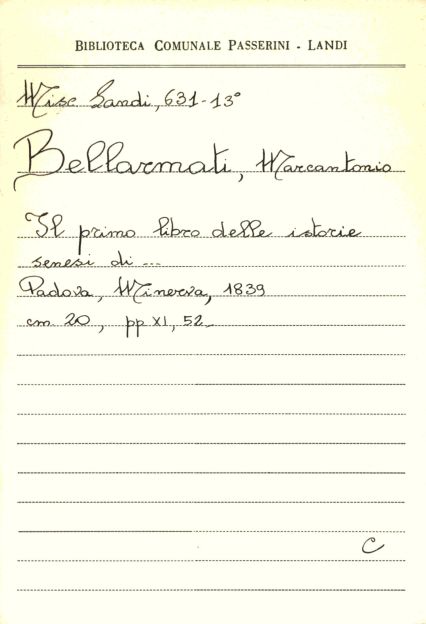 BIBLIOTECA COMUNALE PASSERINI - LANDI
Misc Landi, 631-13°
Bellarmati, Marcantonio
Il primo libro delle istorie
senesi di ...
Padova, Minerva, 1839
cm. 20, pp XI, 52_
C